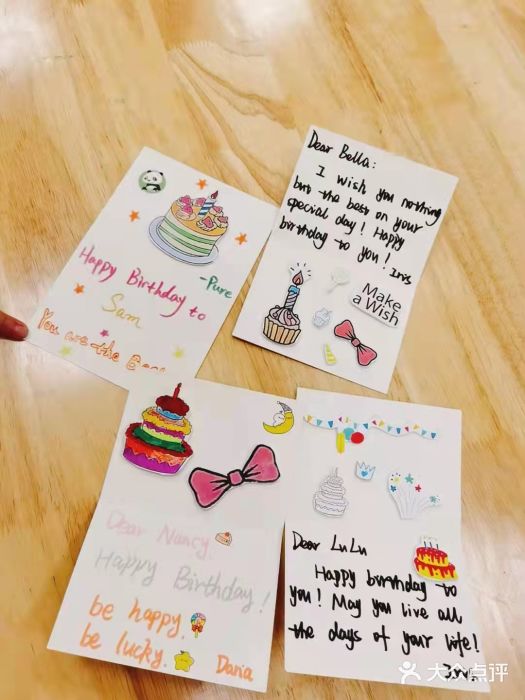 Happy Birthday to
-Pure
Sam
You are the
Dear Bella:
I wish you nothing
but the best on your
special day! Happy
birthday to you!
Iris
Make
a Wish
Dear Nancy,
Happy Birthday!
be happy.
be lucky.
Daria
Dear LuLu
Happy birthday to
you! May you live all
the days of your life!
大众点评